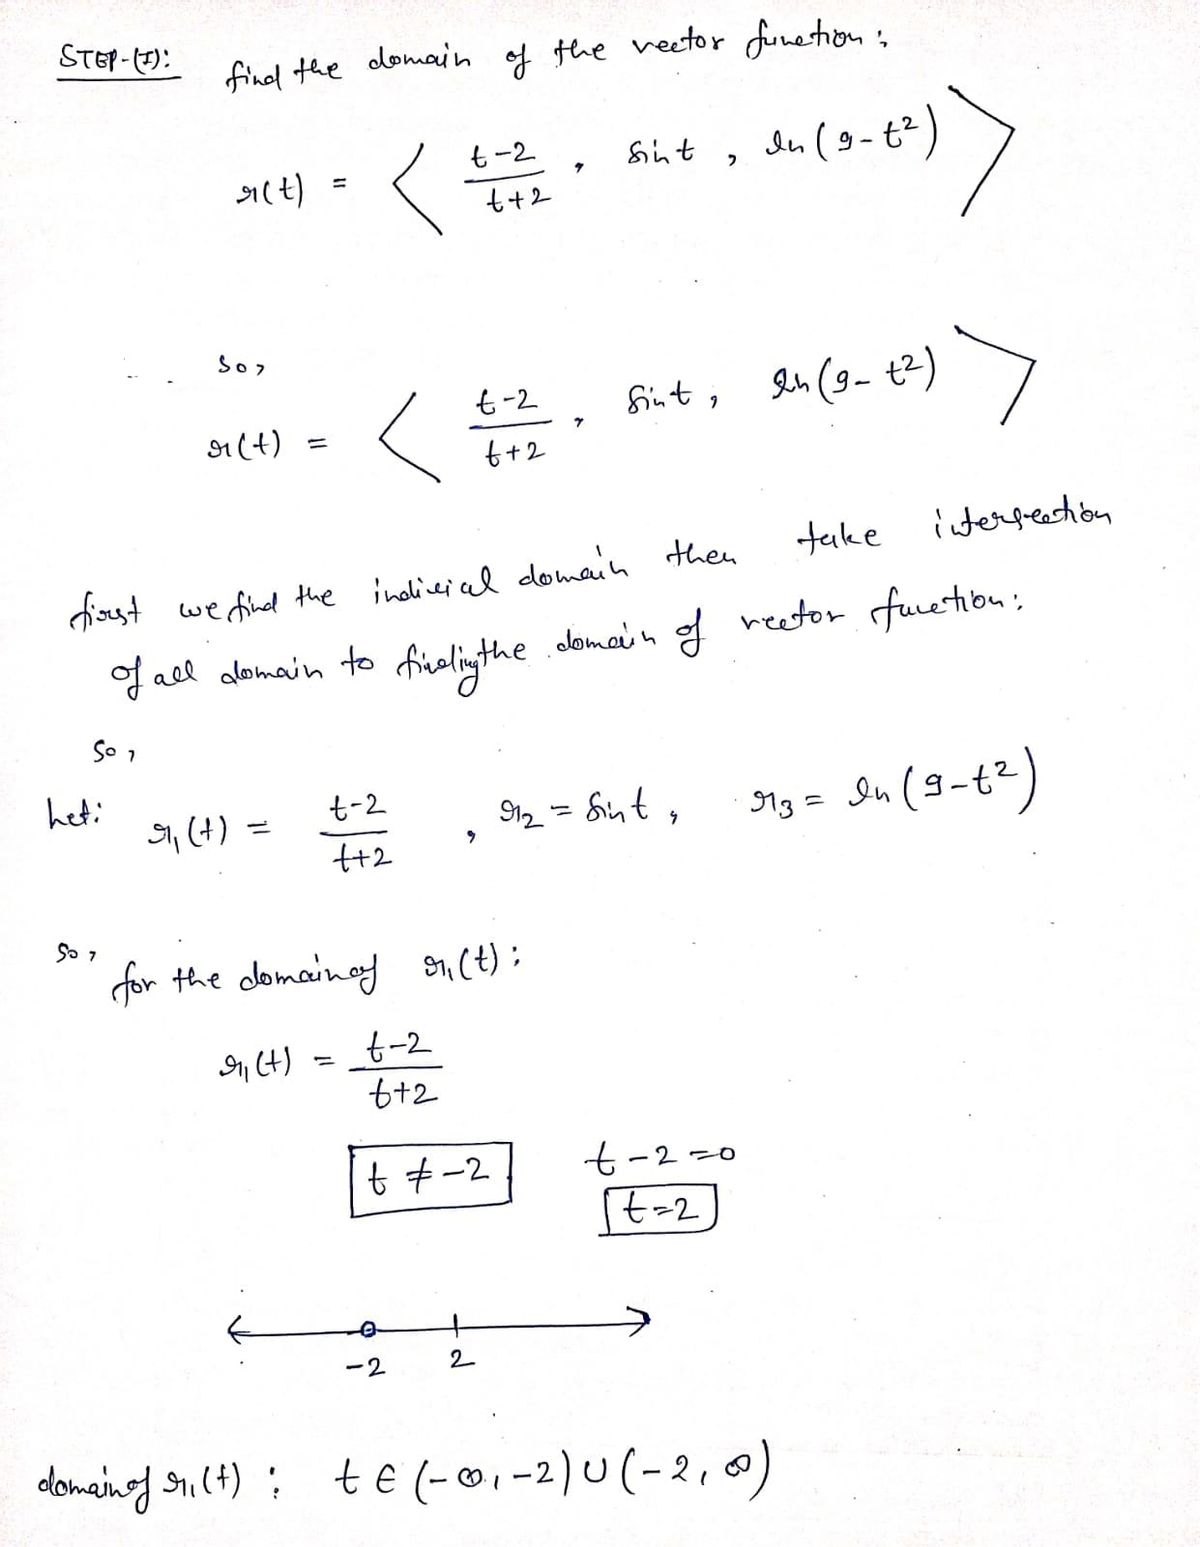 STEP-(I): find the domain of the vector function;
r(t) = < t-2/t+2 , sint , ln(9-t²) >
So,
r(t) = < t-2/t+2 , sint , ln(9-t²) >
first we find the indivical domain then take intersection
of all domain to findingthe domain of vector function:
So,
Let: r₁(t) = t-2/t+2 , r₂ = sint , r₃ = ln(9-t²)
So, for the domain of r₁(t);
r₁(t) = t-2/t+2
t ≠ -2 t-2=0
t=2
-2 2
domain of r₁(t) : t ∈ (-∞, -2) ∪ (-2, ∞)